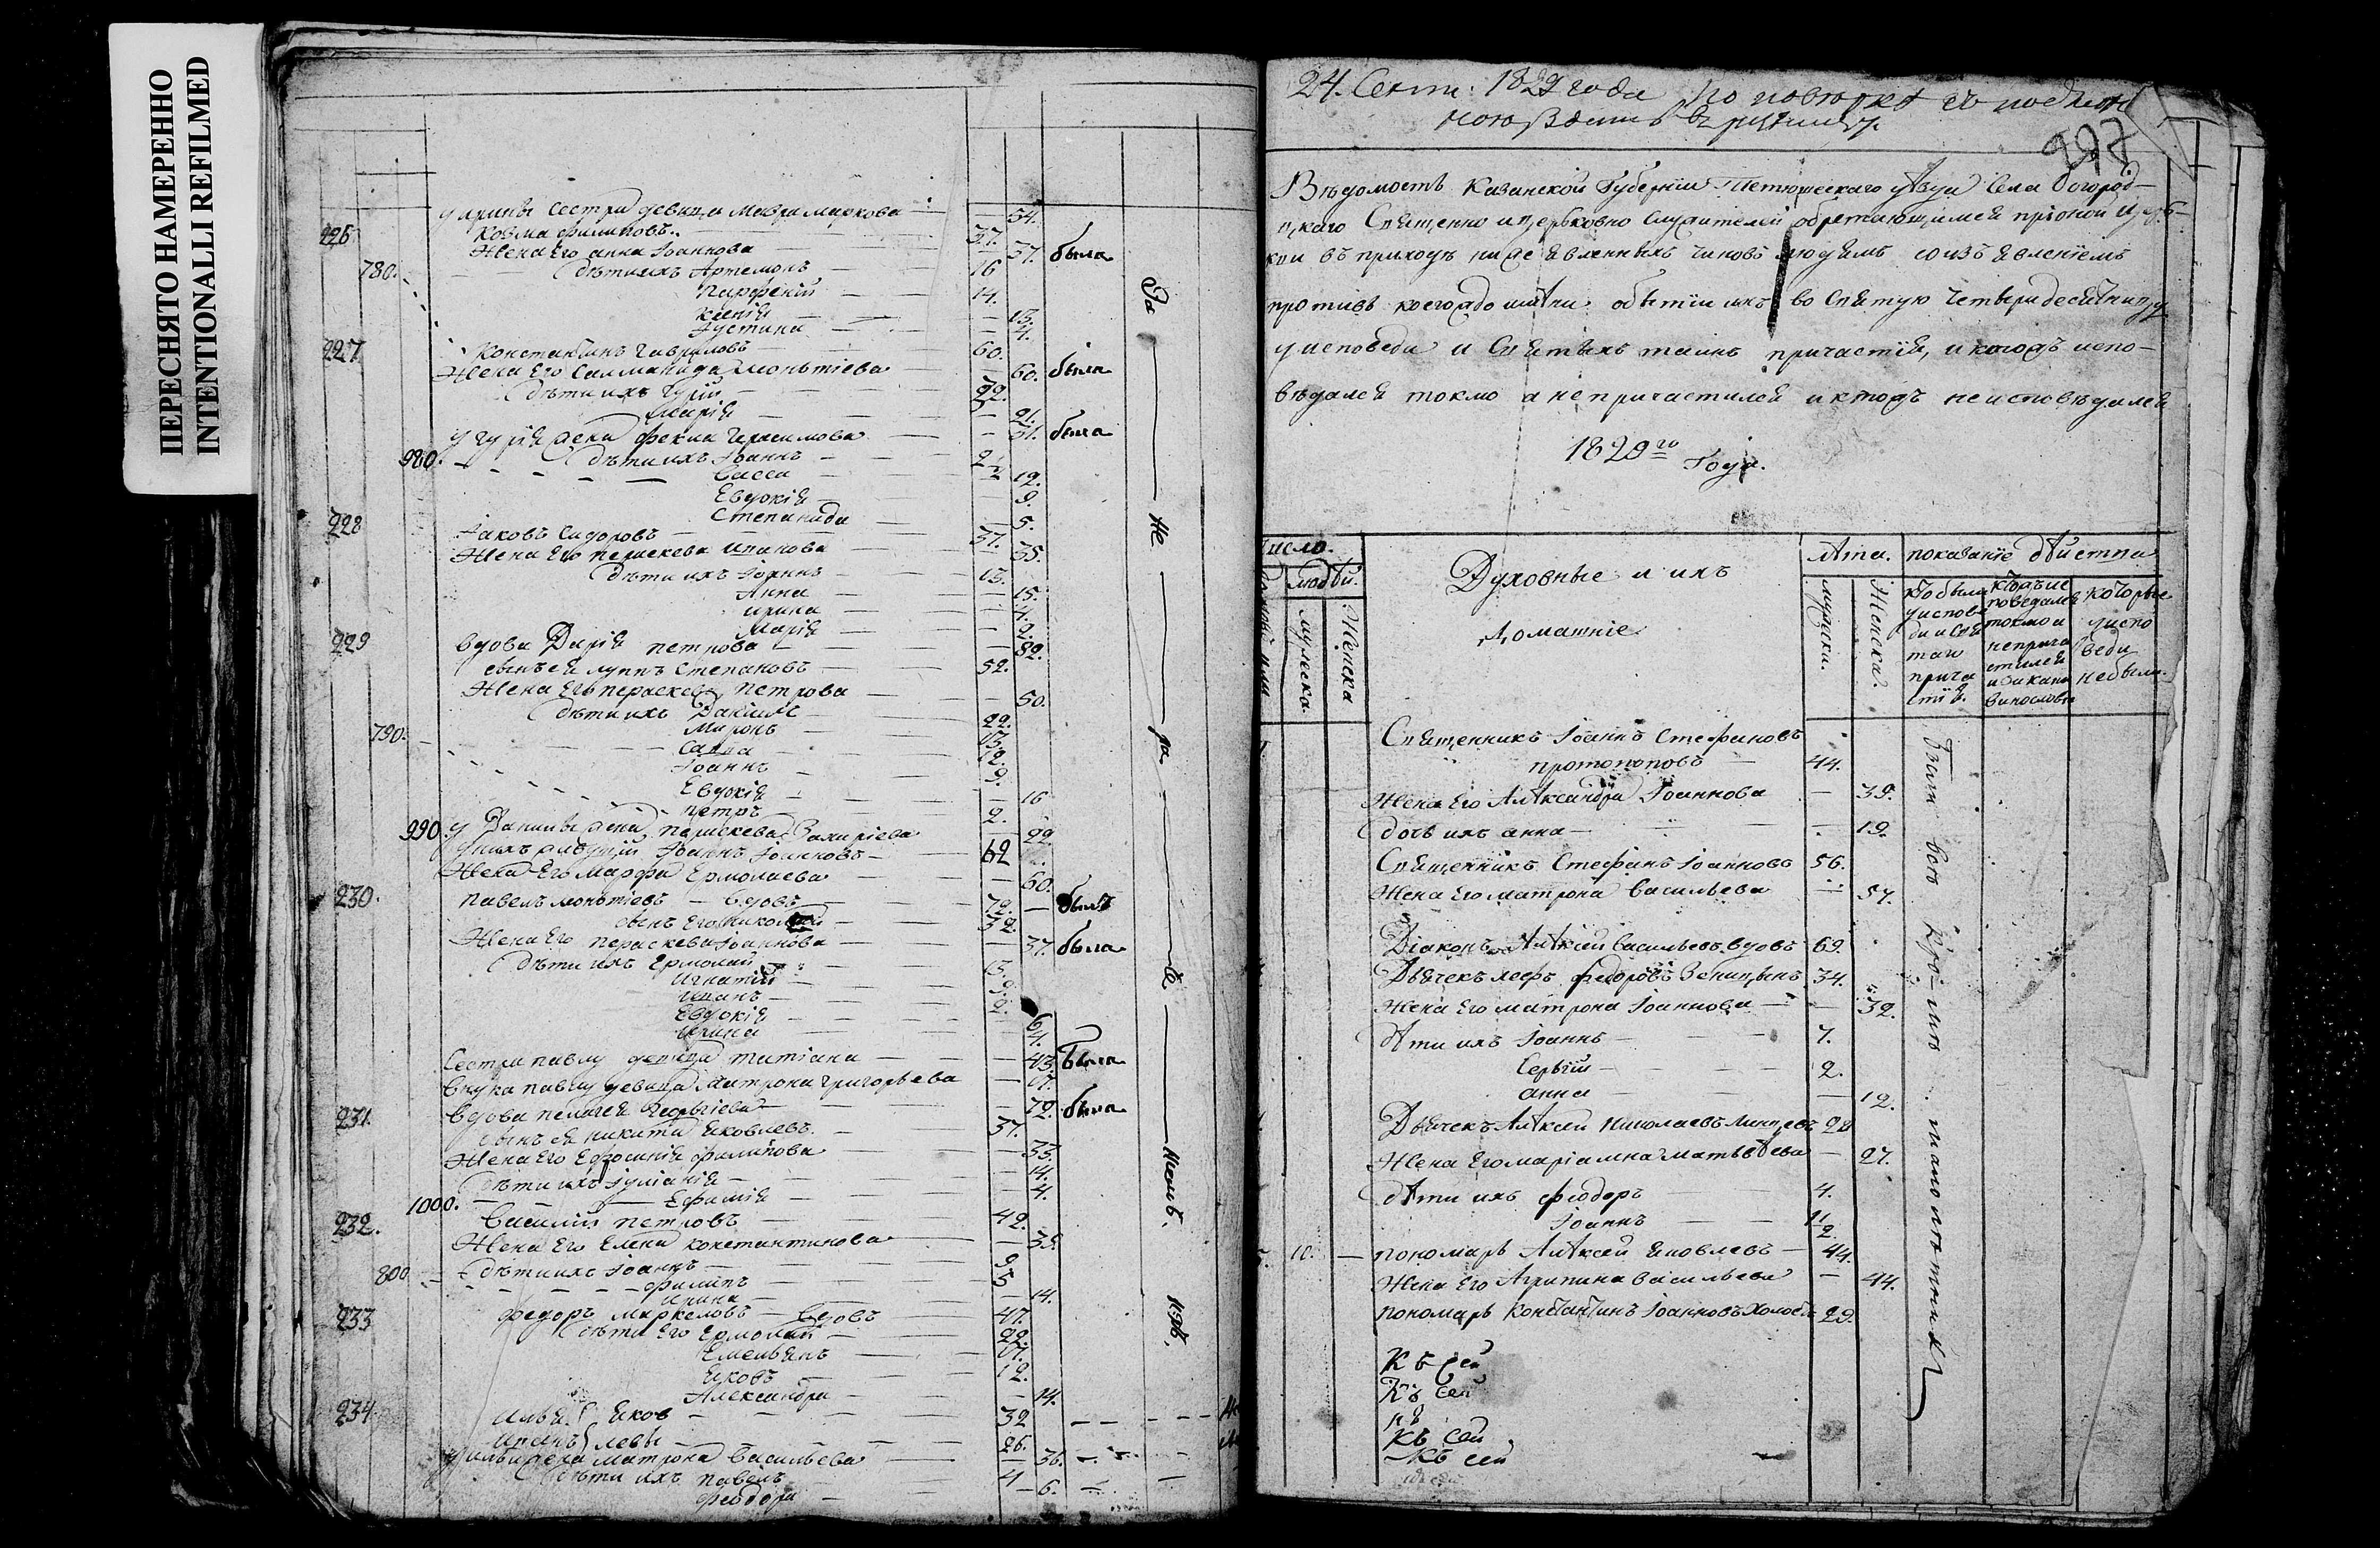 ПЕРЕСНЯТО НАМЕРЕННО
INTENTIONALLI REFILMED
сестра девица Мавра Маркова 54.
226 Козма Филиповъ 37.
Жена Его Анна Іоаннова 37. была
780. дѣти ихъ Артемонъ 16
Парфеній 14.
Ксенія 13.
Іустина 4.
227 Константинъ Гавриловъ 60.
Жена Его Саламанида 60. была
дѣти ихъ Гурій
Марія 21.
у Гурія жена Фекла Герасимова 31. была
980. дѣти ихъ Іоаннъ
Васса 12.
Евдокія 9.
Степанида 5.
228 Іаковъ Сидоровъ 37.
Жена Его Параскева 35.
дѣти ихъ Іоаннъ 13.
Анна 15.
Ирина 4.
Марія 2.
229 вдова Дарія Петрова 82.
сынъ ея Луппъ Степановъ 52.
Жена Его Параскева Петрова 50.
дѣти ихъ Даніилъ 22.
790. Миронъ 13.
Савва 12.
Іоаннъ 9.
Евдокія 16
Петръ 2.
990. у Даниила жена Параскева Захаріева 22.
у нихъ Іоаннъ Іоанновъ 62
Жена Его Марфа Ермолаева 60.
230. Павелъ вдовъ 72. былъ
сынъ Его Николай 32
Жена Его Параскева Іоаннова 37. была
дѣти ихъ Ермолай 13.
Игнатій 9.
2.
Евдокія 6
Ирина 4.
Сестра Павлу девица Татіана 43. была
Внука Павлу девица Матрона Григорьева 17.
231. Вдова Пелагея Георгіева 72. была
сынъ ея Никита Яковлевъ 37.
Жена Его Ефросинія Филипова 33.
дѣти ихъ Іуліанія 14.
1000. Ефимія 4.
232. Василій Петровъ 42.
Жена Его Елена Константинова 35.
800 дѣти ихъ Іоаннъ 9
Филипъ 5
Ирина 14.
233 Федоръ Маркеловъ вдовъ 47.
дѣти Его Ермолай 22.
Емельянъ 17.
Яковъ 12.
Александра 14.
234 Илья Яков 32
26.
у Ильи жена Матрона Васильева 36.
дѣти ихъ Павелъ 4
Феодора 6.
За не ра
24. Сент: 1829 года По повѣркѣ съ
297
Вѣдомость Казанской Губерніи Тетюшскаго уѣзда Села Богород-
цкаго Священно и церьковно служителей обретающимся при оной Церк-
ви въ приходѣ ниже явленныхъ чиновъ людемъ со изъявленіемъ
противъ коегождо имяни. бытія ихъ во Святую Четыридесятницу
у исповеди и Святыхъ таинъ причастія, и ктожъ испо-
вѣдался токмо а не причастился и ктожъ не исповѣдался
1829го Года.
Число.
людей.
мужеска.
Женска
Духовные и ихъ
домашніе.
лѣта.
мужеска.
Женска.
показаніе дѣйства
Кто были у исповеди и святаи причастія.
Которые исповедались токмо а не причастились и за каким винословіе
которые у исповеди не были.
Священникъ Іоаннъ Стефановъ
Протопоповъ 44.
Жена Его Алѣксандра Іоаннова 39.
дочь ихъ Анна 19.
Священникъ Стефанъ Іоанновъ 56.
Жена Его Матрона Васильева 57.
Діаконъ Алѣксій Васильевъ вдовъ 69.
Дьячекъ Федоровъ 34.
Жена Его Матрона Іоаннова 32.
дѣти ихъ Іоаннъ 7.
Сергій 2.
Анна 12.
Дьячекъ Алѣксій Николаевъ 28
Жена Его Маріамна Матвѣева 27.
дѣти ихъ Феодоръ 4.
Іоаннъ 1/2
10. пономарь Алѣксей Яковлевъ 44.
Жена Его Агрипина Васильева 44.
пономарь Константинъ Іоанновъ Холостъ 29.
Были всѣ кромѣ малолѣтнихъ
Къ сей
Къ сей
Къ сей
Къ сей